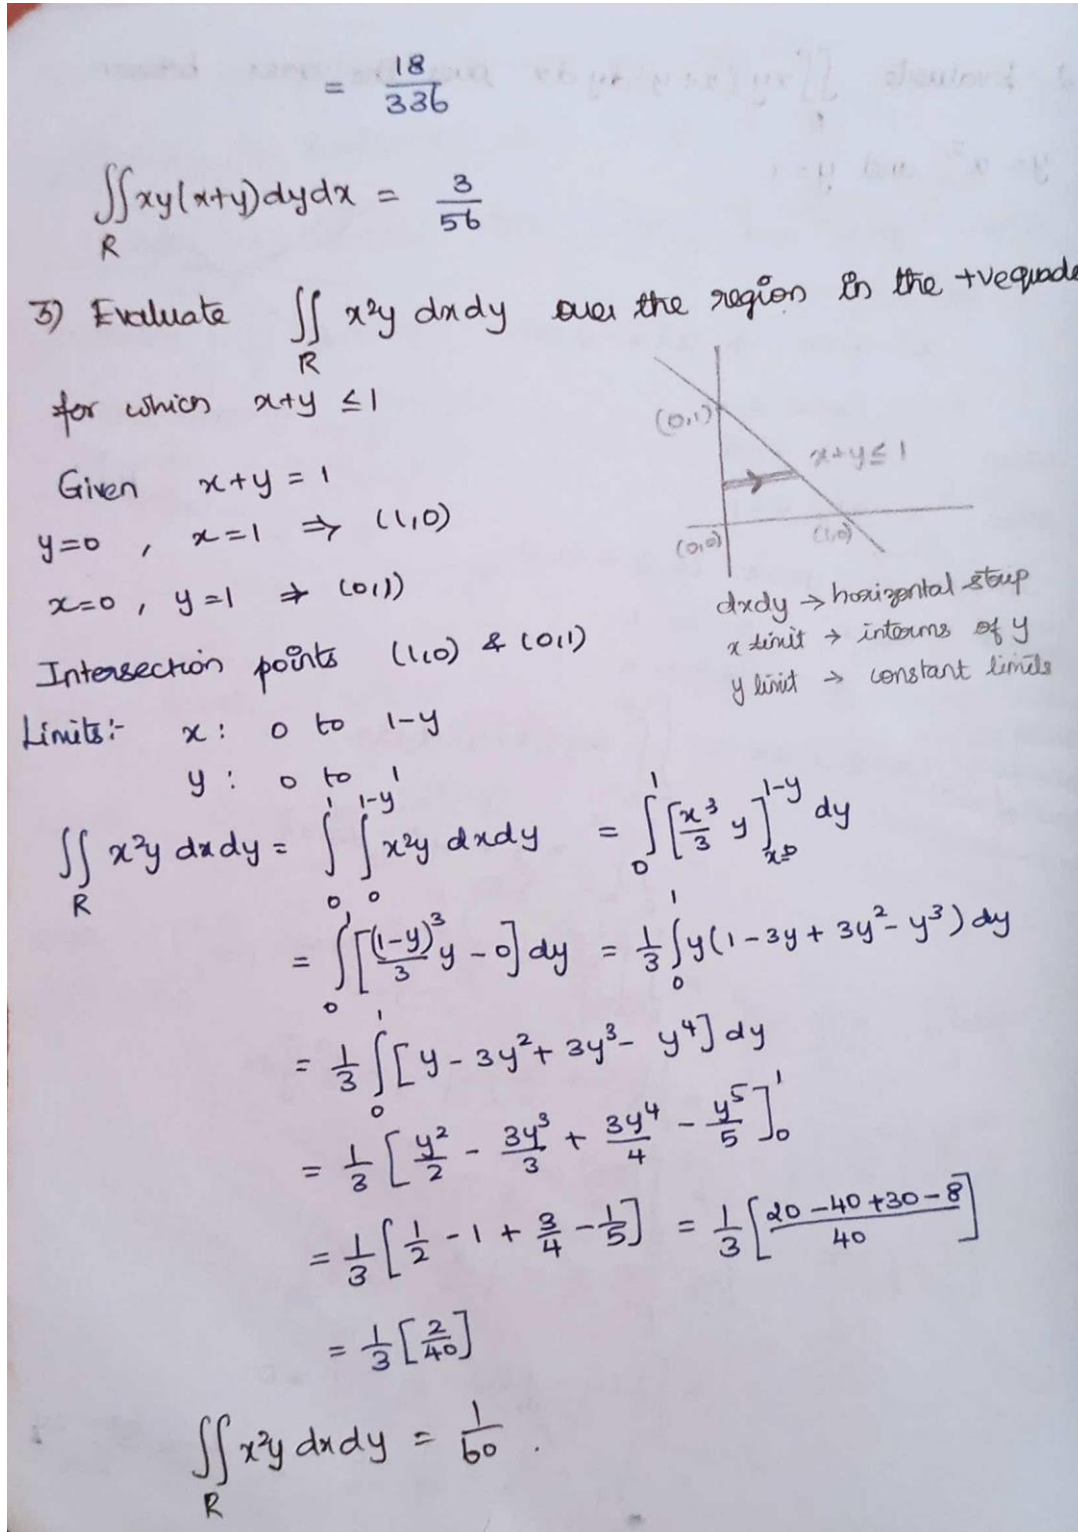 = 18/336
∬_R xy(x+y)dydx = 3/56
3) Evaluate ∬_R x²y dxdy over the region in the +ve
for which x+y ≤ 1
(0,1)
x+y ≤ 1
(0,0) (1,0)
Given x+y = 1
y=0 , x=1 ⇒ (1,0)
x=0 , y=1 ⇒ (0,1)
Intersection points (1,0) & (0,1)
dxdy → horizontal strip
x limit → interms of y
y limit → constant limits
Limits:- x : 0 to 1-y
y : 0 to 1
∬_R x²y dxdy = ∫_0^1 ∫_0^{1-y} x²y dxdy = ∫_0^1 [x³/3 y]_{x=0}^{1-y} dy
= ∫_0^1 [(1-y)³/3 y - 0] dy = 1/3 ∫_0^1 y(1-3y+3y²-y³) dy
= 1/3 ∫_0^1 [y-3y²+3y³-y⁴] dy
= 1/3 [y²/2 - 3y³/3 + 3y⁴/4 - y⁵/5]_0^1
= 1/3 [1/2 - 1 + 3/4 - 1/5] = 1/3 [20-40+30-8/40]
= 1/3 [2/40]
∬_R x²y dxdy = 1/60 .